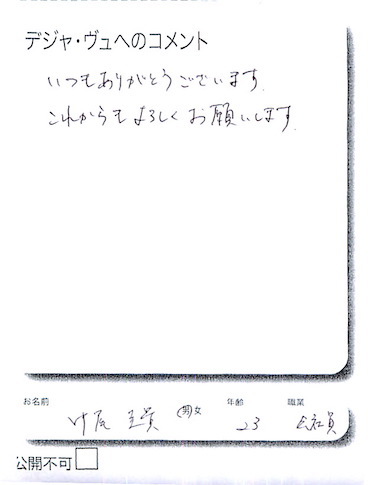 デジャ・ヴュへのコメント
いつもありがとうございます。
これからもよろしくお願いします。
お名前 男 女 年齢 職業
23 会社員
公開不可